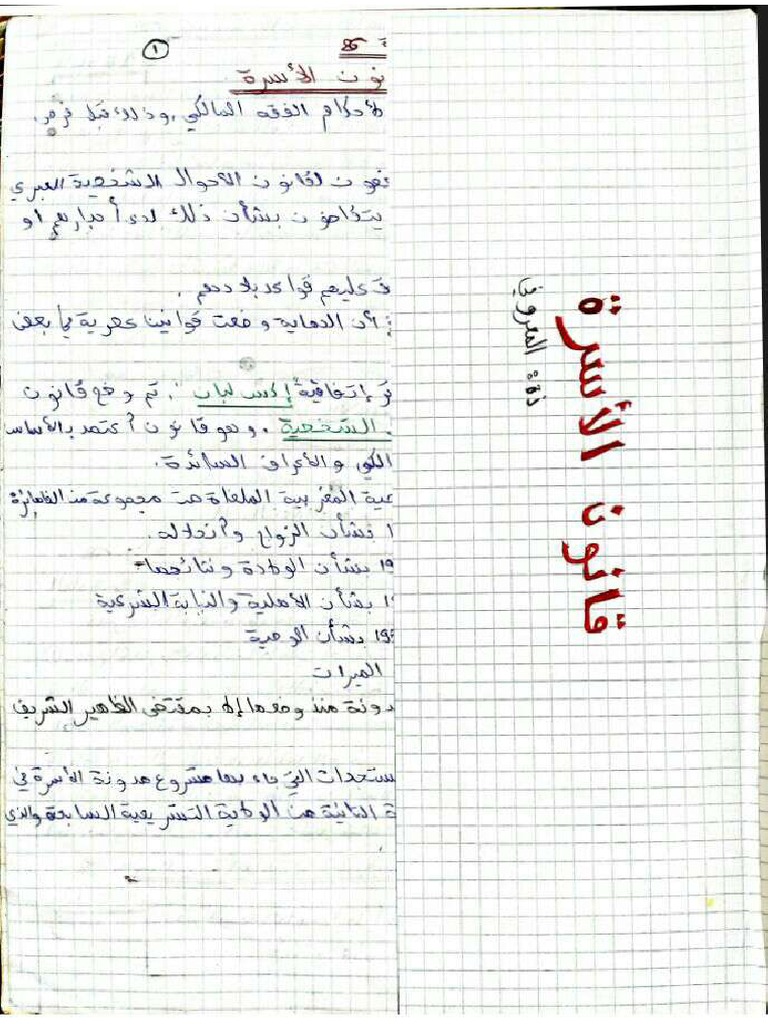 قانون الأسرة
ذة: البروني
١
نون الأسرة
لأحكام الفقه المالكي، وذلك قبل فرض
لقانون الأحوال الشخصية العبري
بشأن ذلك لدى أحبارهم او
عليهم قواعد بلادهم.
أن الحماية وضعت قوانين عصرية في بعض
إتفاقية إكس ليبان، تم وضع قانون
الشخصية، وهو قانون أعتمد بالأساس
والأعراف السائدة.
عية المغربية الملغاة من مجموعة من
بشأن الزواج وأنحلاله.
19 بشأن الولادة ونتائجها
بشأن الأهلية والنيابة الشرعية
بشأن الوصية
الميراث
دونة منذ وضعها إلا بمقتضى الظهير الشريف
ستجدات التي جاء بها مشروع مدونة الأسرة في
ة الثانية من الولاية التشريعية السابعة والذي